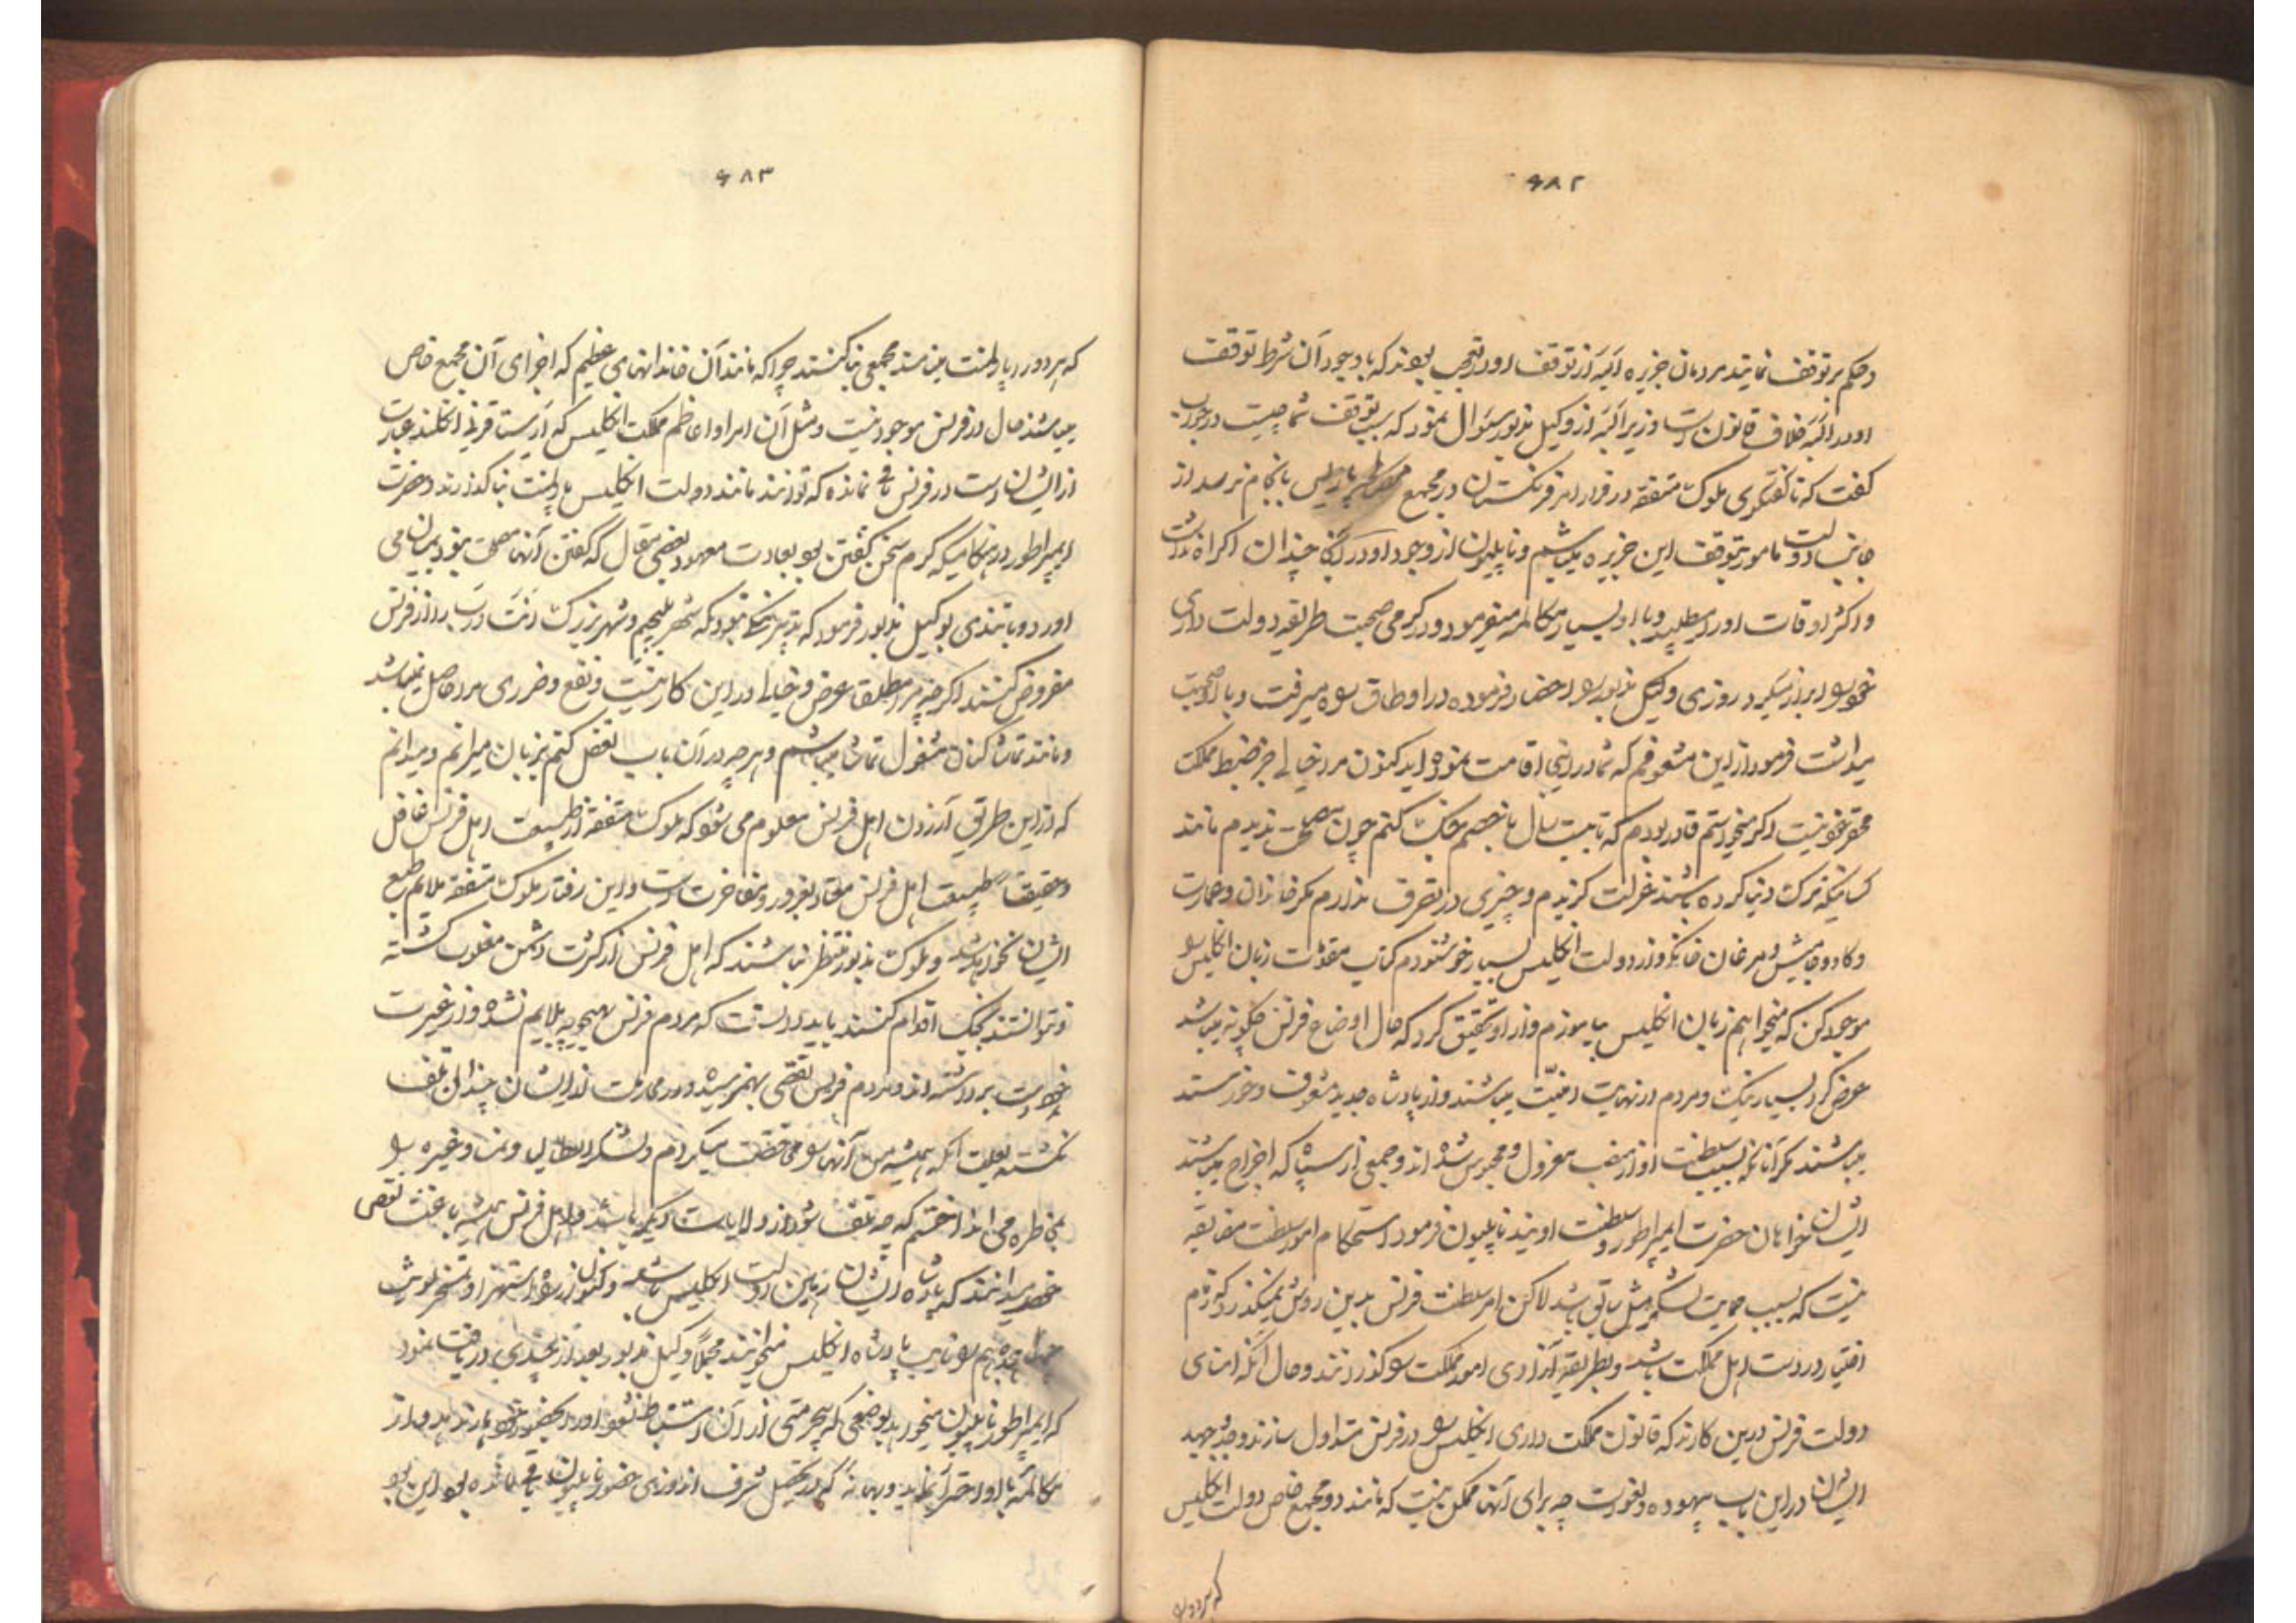 ۶۸۲
و حکم بر توقف نمایند مردمان جزیره اَلبَه از توقف او در تعجب بودند که با وجود آن شرط توقف
او در اَلبَه خلاف قانون است وزیر اَلبَه از وکیل مزبور سئوال نمود که سبب توقف شما چیست در جواب
گفت که تا گفتگوی ملوک متفقه در قرار امر فرنگستان در مجمع پاریس بانجام نرسد از
جانب دولت مامور بتوقف این جزیره میباشم و ناپلیون از وجود او در آنجا چندان اکراه نداشت
و اکثر اوقات او را میطلبید و با او بسیار مکالمه میفرمود و در گرمی صحبت طریقه دولت داری
خود را بر از میکرد روزی وکیل مزبور را احضار فرموده در اوطاق راه میرفت و با او صحبت
میداشت فرمود از این مشعوفم که شما در اینجا اقامت نموده اید کنون مرا خیالی جز ضبط مملکت
محقر خود نیست اگر میخواستم قادر بودم که تا بیست سال با خصم جنگ کنم چون مصلحت ندیدم مانند
کسانیکه ترک دنیا کرده باشند عزلت گزیدم و چیزی در تصرف ندارم مگر خاندان و عمارت
و گاو و جامیش و مرغان خانگی و از دولت انگلیس بسیار خوشنودم کتاب مقدمات زبان انگلیس را
موجود کن که میخواهم زبان انگلیس بیاموزم و از او تحقیق کرد که حال اوضاع فرنس چگونه میباشد
عرض کرد بسیار نیک و مردم در نهایت امنیّت میباشند و از پادشاه جدید مشعوف و خورسند
میباشند مگر آنانکه بسبب سلطنت او از منصب معزول و محبوس شده اند و جمعی از سپاه که اخراج میباشند
ایشان خواهان حضرت ایمپراطور و سلطنت اویند ناپلیون فرمود استحکام امور سلطنت مضایقه
نیست که بسبب حمایت لشکر مثل سابق باشد لاکن امر سلطنت فرنس بدین روش نمیگذرد که تمام
اختیار در دست اهل مملکت باشد و بطریقه آزادی امور مملکت را گذرانند و حال آنکه امنای
دولت فرنس درین کارند که قانون مملکت داری انگلیس را در فرنس متداول سازند و جدّ و جهد
ایشان در این باب بیهوده و لغو است چه برای آنها ممکن نیست که مانند دو مجمع خاص دولت انگلیس
که هر دو را
۶۸۳
که هر دو را پارلمنت مینامند مجمعی بنا کنند چرا که مانند آن خاندانهای عظیم که اجزای آن مجمع خاص
میباشند حال در فرنس موجود نیست و مثل آن امرا و اعاظم مملکت انگلیس که اَرِستاقرسی انگلند عبارت
از ایشان است در فرنس باقی نمانده که توانند مانند دولت انگلیس پارلمنت بنا گذارند و حضرت
ایمپراطور در هنگامیکه گرم سخن گفتن بود بعادت معهود بعضی مقال که گفتن آنها مصلحت نبود بمیان می
آورد و بتندی بوکیل مزبور فرمود که تدبیر نیکی نبود که شهر بلجیم و شهر بزرگ اَنتَ وَرپ را از فرنس
مفروض کنند اگر چه مرا مطلقا عرض و خیالی در این کار نیست و نفع و ضرری مرا حاصل نمیباشد
و مانند تماشا کنان مشغول تماشا میباشم و هر چه در آن باب تعقل کنم بزبان میرانم و میدانم
که از این طریق آزردن اهل فرنس معلوم می شود که ملوک متفقه از طبیعت اهل فرنس غافل
و حقیقت طبیعت اهل فرنس معتاد بغرور و مفاخرت است و این رفتار ملوک متفقه ملایم طبع
ایشان نخواهد شد و ملوک مزبور منتظر نباشند که اهل فرنس از کثرت دشمن مغلوب گشته
و نتوانستند بجنگ اقدام کنند باید دانست که مردم فرنس بهیچوجه ملایم نشده و از غیرت
دست برنداشته اند و مردم فرنس نقصی بهم نرسیده و در محاربت از ایشان چندان تلف
نگشته بعلت آنکه همیشه من آنها را محافظت میکردم و لشکر ایطالیا و نمسا و غیره را
بمخاطره می انداختم که چه تلف شود از ولایات دیگر باشد و اهل فرنس همیشه باعث نقص
خود میدانند که پادشاه ایشان رهین دولت انگلیس باشد و کنون از راه استهزا و تمسخر لوئیس
هجدهم را نایب پادشاه انگلیس میخوانند مجملاً وکیل مزبور بعد از چندی دریافت نمود
که ایمپراطور ناپلیون میخواهد بوضعی که بیحرمتی از آن استنباط نشود او را بحضور خود بار ندهد و از
مکالمه با او احتراز نماید و بهانه که در تحصیل شرف اندوزی حضور ناپلیون باقی مانده بود این بود